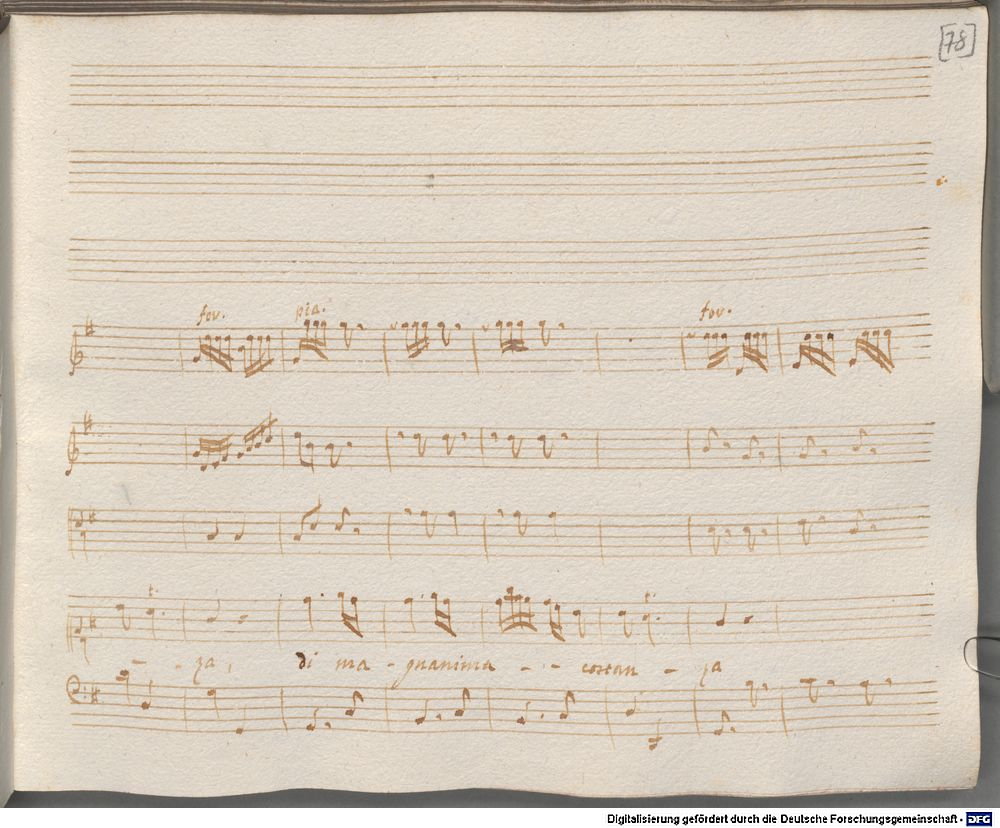 [78]
for. pia. for.
- - za, di ma - gnanima - - costan - za
Digitalisierung gefördert durch die Deutsche Forschungsgemeinschaft - DFG